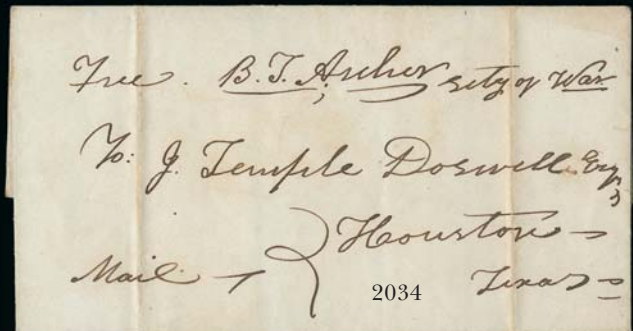 Free. B. T. Archer Sety of War
To: J. Temple Doswell Esq
Houston
Mail Texas
2034